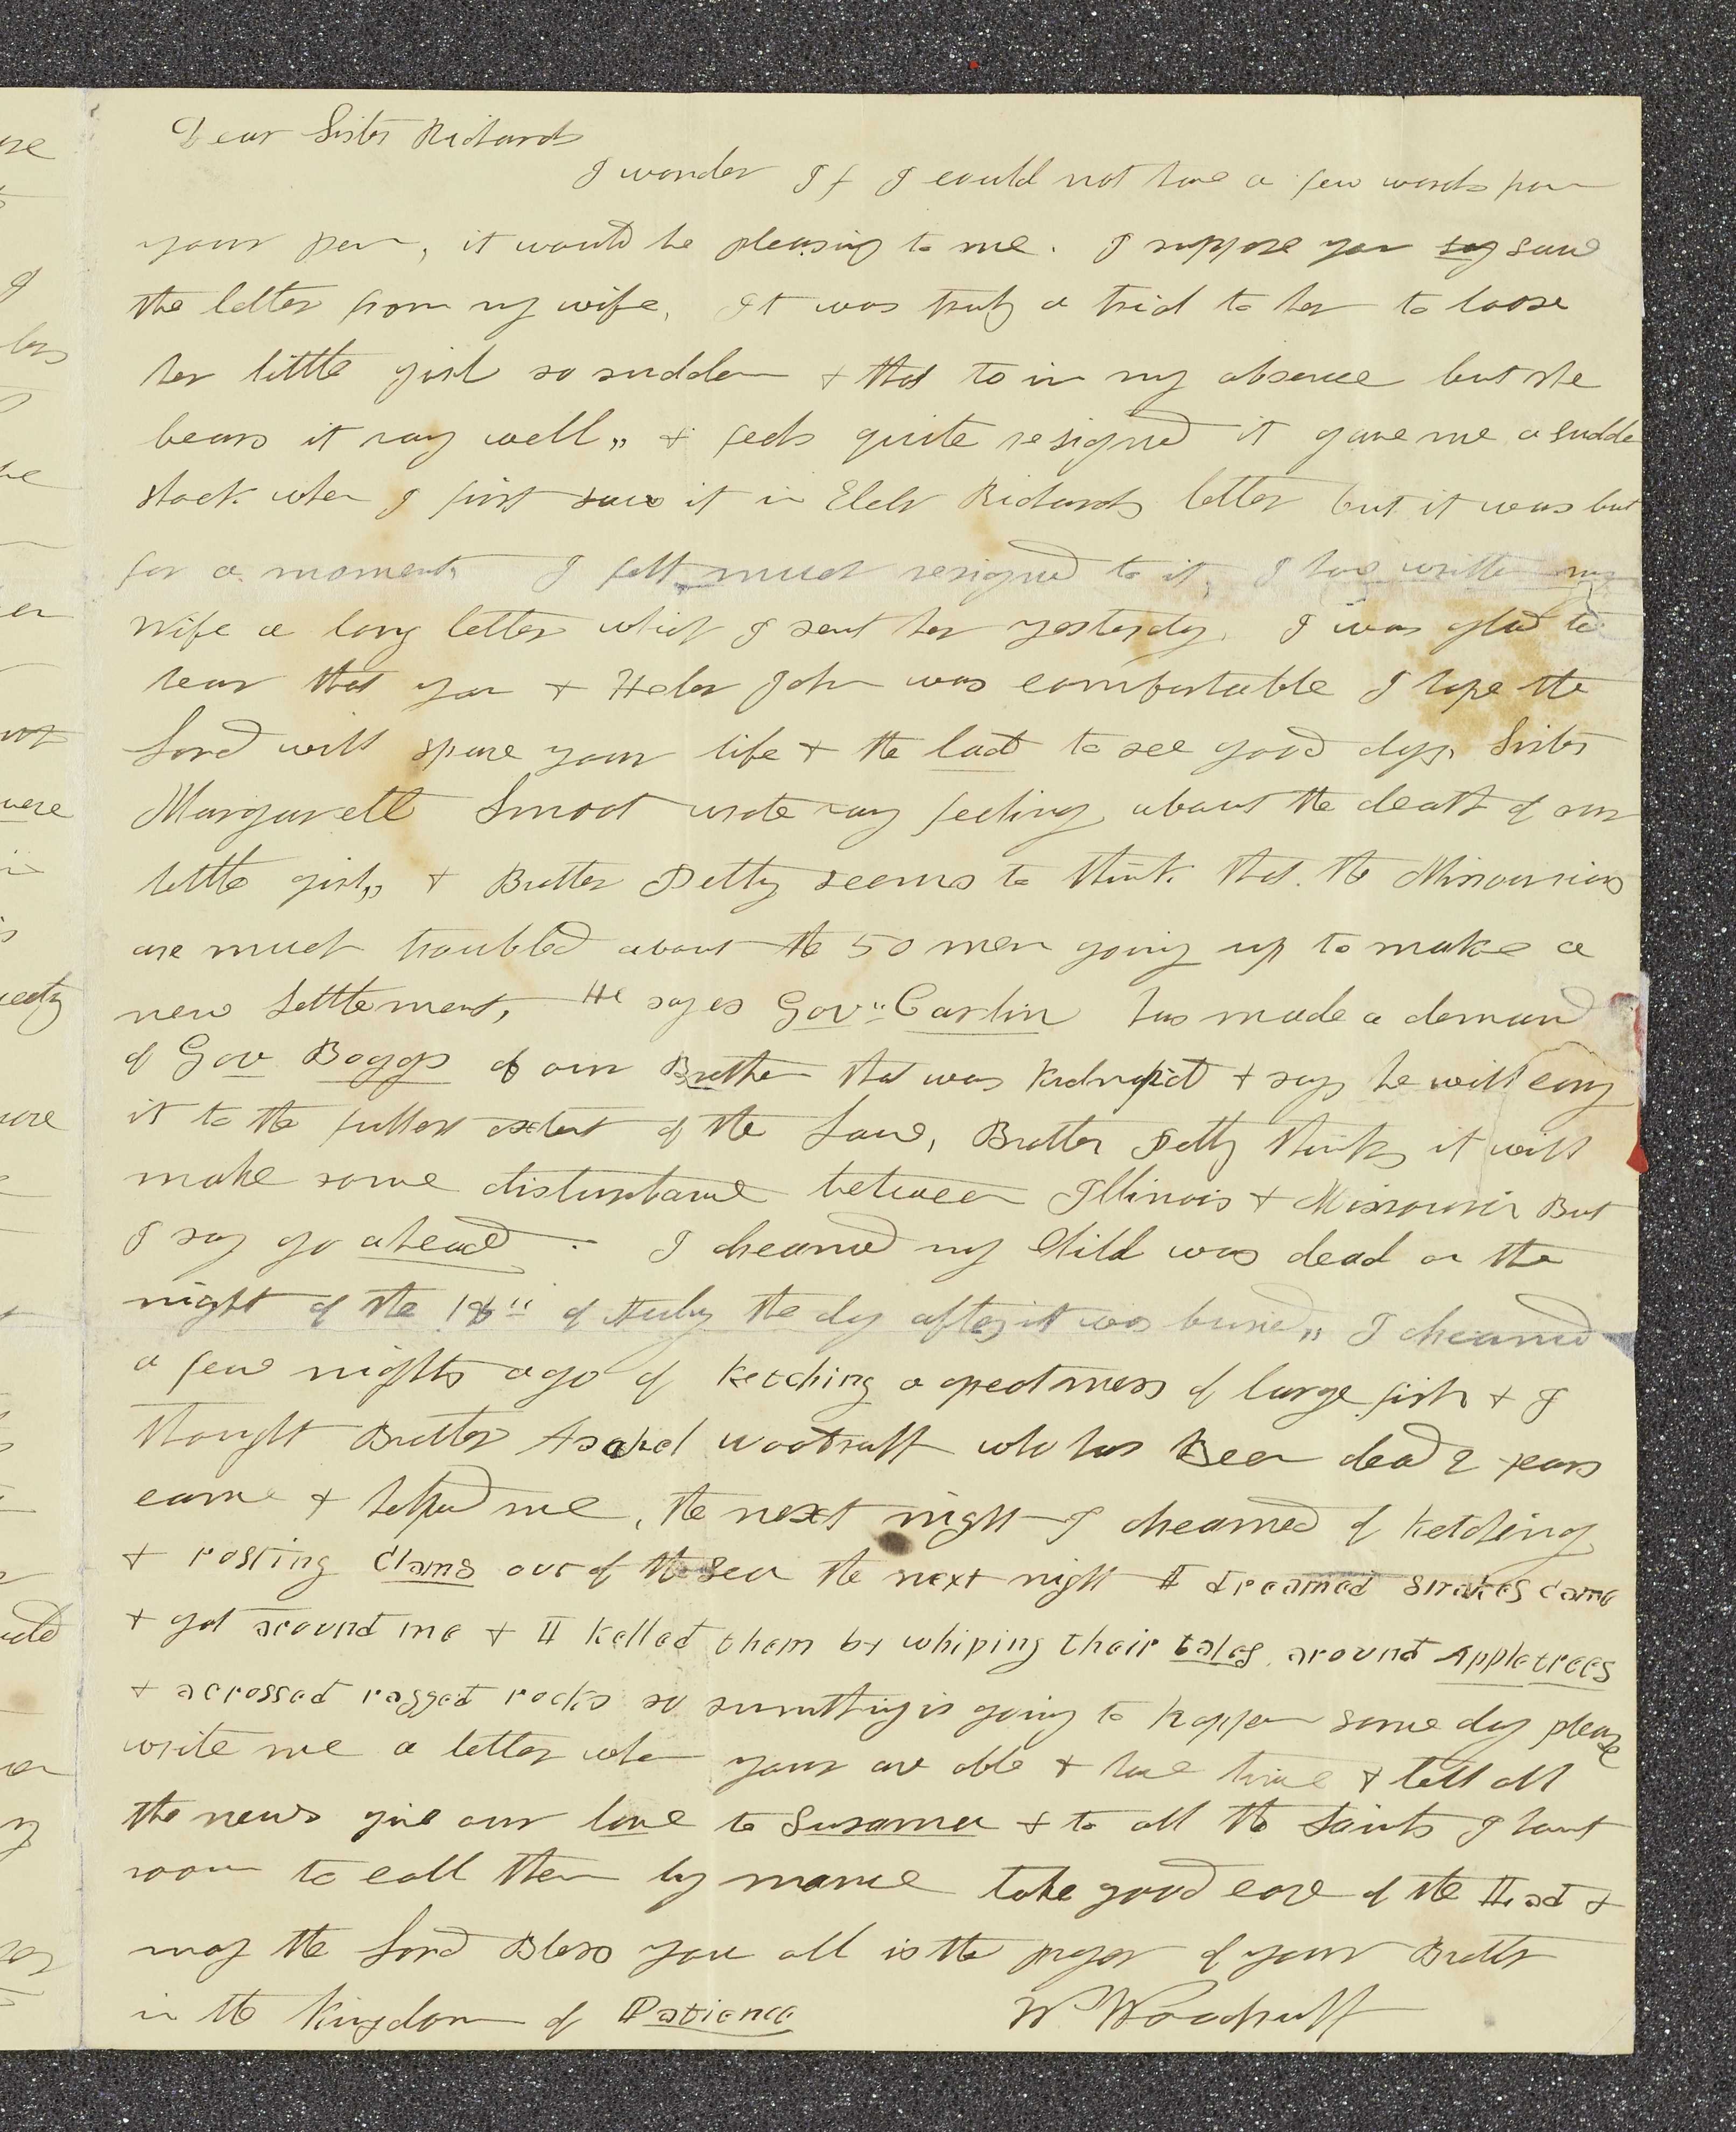 Dear Sister Richards
I wonder If I could not have a few words from
your pen, it would be pleasing to me. I suppose you say saw
the letter from my wife, It was truly a trial to her to loose
her little girl so sudden & that to in my absence but she
bears it vary well,, & feels quite resigned it gave me a sudden
shock when I first saw it in Eldr Richards letter but it was but
for a moment, I felt much resigned to it, I have written my
wife a long letter which I sent her yesterday, I was glad to
hear that you & Heber John was comfortable I hope the
Lord will spare your life & the lad to see good days, Sister
Margarett Smoot wrote vary feeling about the death of our
little girl,, & Brother Petty seems to think that the Missourians
are much troubled about the 50 men going up to make a
new Settlement, He sayes Gov" Carlin has made a demand
of Gov Boggs of our Brethen that was kidnapt & says he will cary
it to the fullest extent of the Law, Brother Petty thinks it will
make some disturbance between Illinois & Missouri But
I say go ahead. I dreamed my Child was dead on the
night of the 18" of July the day after it was buried,, I dreamed
a few nights ago of ketching a great mess of large fish & I
thought Brother Asahel Woodruff who has Been dead 2 years
came & helped me, the next night I dreamed of ketching
& rosting Clams out of the Sea the next night I dreamed snakes came
& got around me & I killed them by whiping their tales around Appletrees
& acrossed ragged rocks so sumthing is going to happen some day please
write me a letter when your are able & have time & tell all
the news give our love to Susanna & to all the Saints I hant
room to call them by name take good care of the Head &
may the Lord Bless you all is the prayer of your Brother
in the Kingdom of Patience W. Woodruff